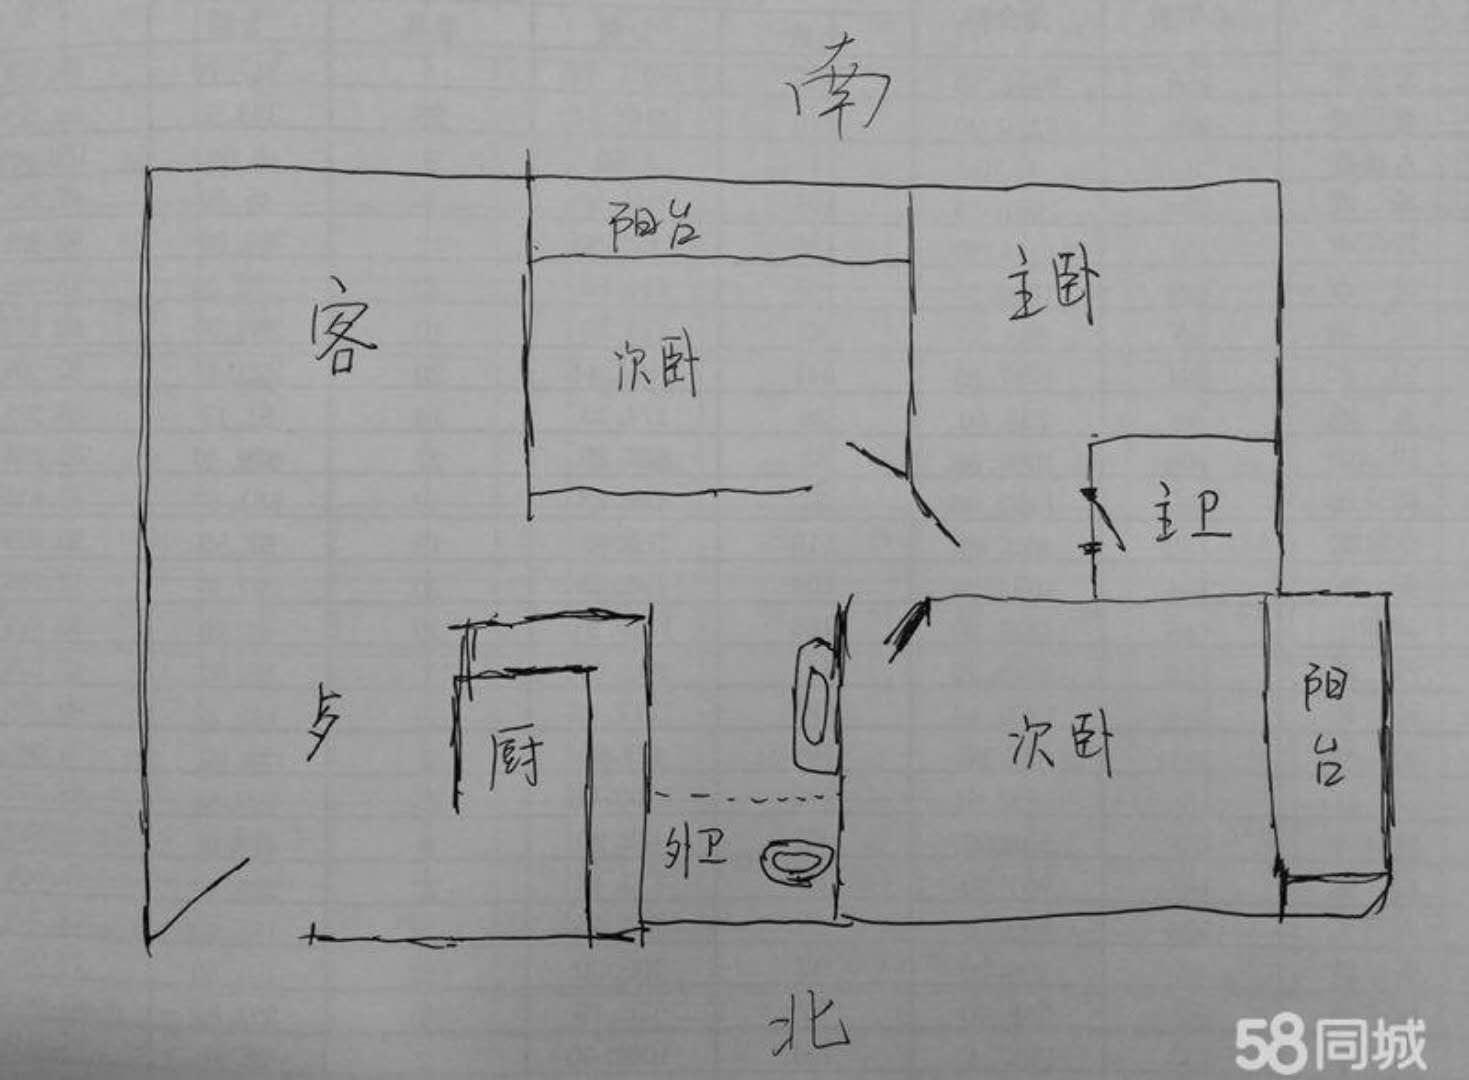 南
阳台
主卧
客
次卧
主卫
阳台
厨
次卧
外卫
北
58同城